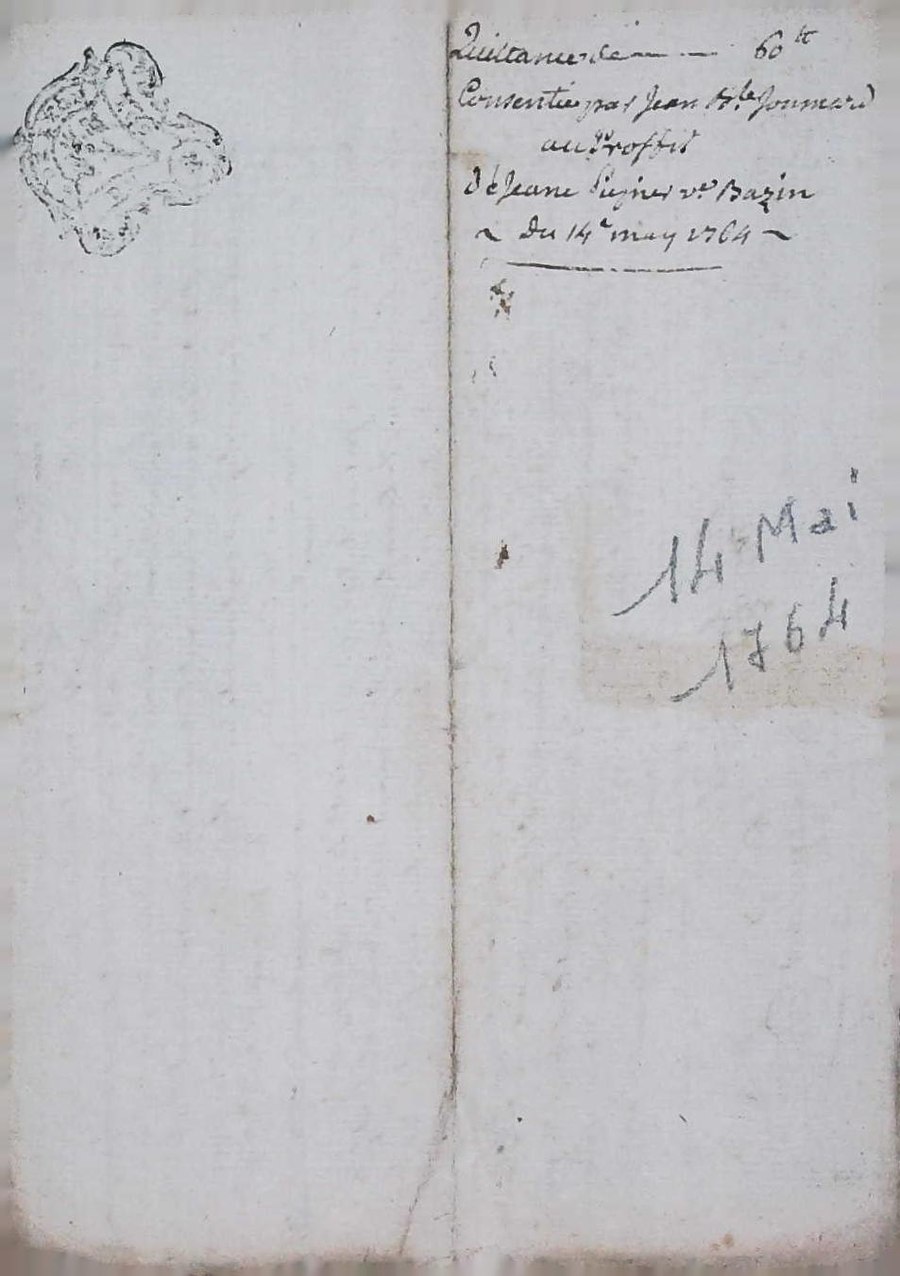 Quittance de — — 60 lt
Consentie par Jean Bte Joumard
au Proffit
de Jeane ve Bazin
~ Du 14e may 1764 ~
14 Mai
1764